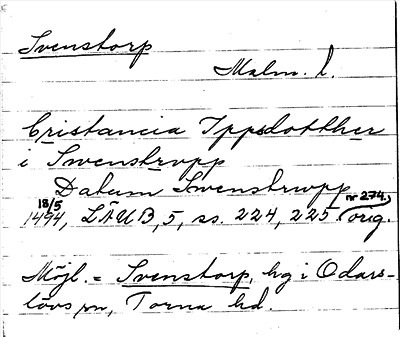 Svenstorp
Malm. l.
Cristancia Ippsdotther
i Swenstrvpp
Datum Swenstrwpp
18/5 1494, LÄUB, 5, ss. 224, 225 (nr 274,) orig.
Möjl. = Svenstorp, hg i Odars-
lövs sn, Torna hd.